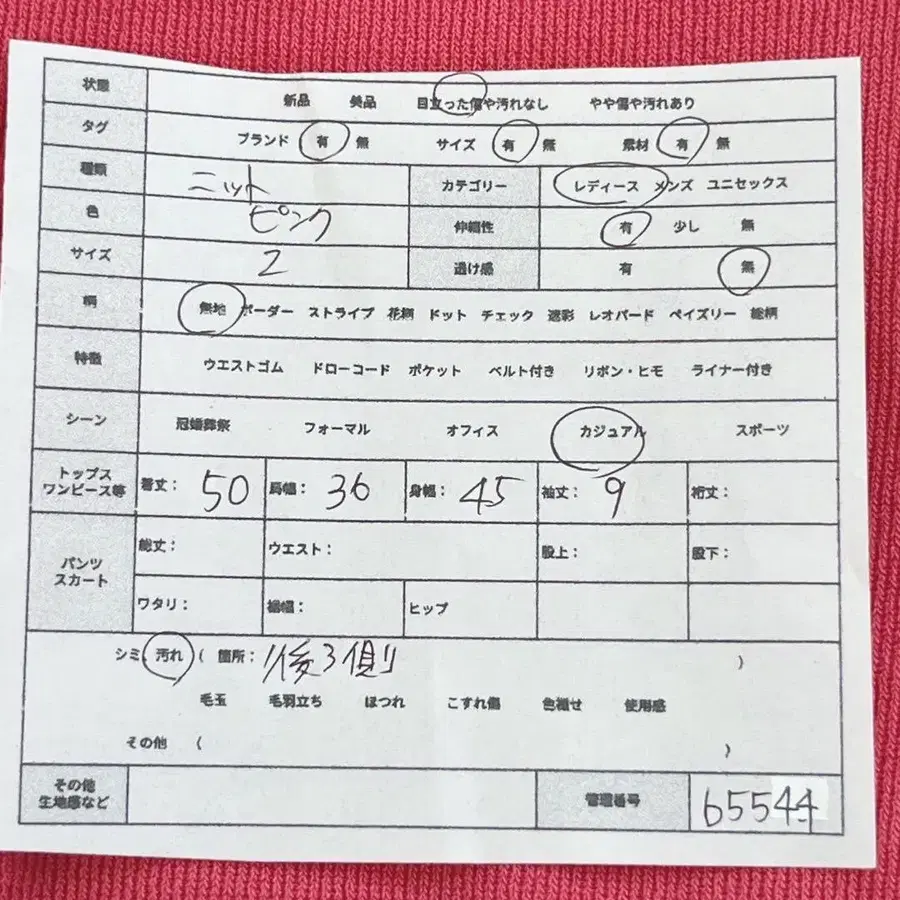 状態 新品 美品 目立った傷や汚れなし やや傷や汚れあり
タグ ブランド 有 無 サイズ 有 無 素材 有 無
種類 ニット カテゴリー レディース メンズ ユニセックス
色 ピンク 伸縮性 有 少し 無
サイズ 2 透け感 有 無
柄 無地 ボーダー ストライプ 花柄 ドット チェック 迷彩 レオパード ペイズリー 総柄
特徴 ウエストゴム ドローコード ポケット ベルト付き リボン・ヒモ ライナー付き
シーン 冠婚葬祭 フォーマル オフィス カジュアル スポーツ
トップス
ワンピース等 着丈: 50 肩幅: 36 身幅: 45 袖丈: 9 裄丈:
パンツ
スカート 総丈: ウエスト: 股上: 股下:
ワタリ: 裾幅: ヒップ
シミ、汚れ ( 箇所: 後ろ側 )
毛玉 毛羽立ち ほつれ こすれ傷 色褪せ 使用感
その他 ( )
その他
生地感など 管理番号 65544